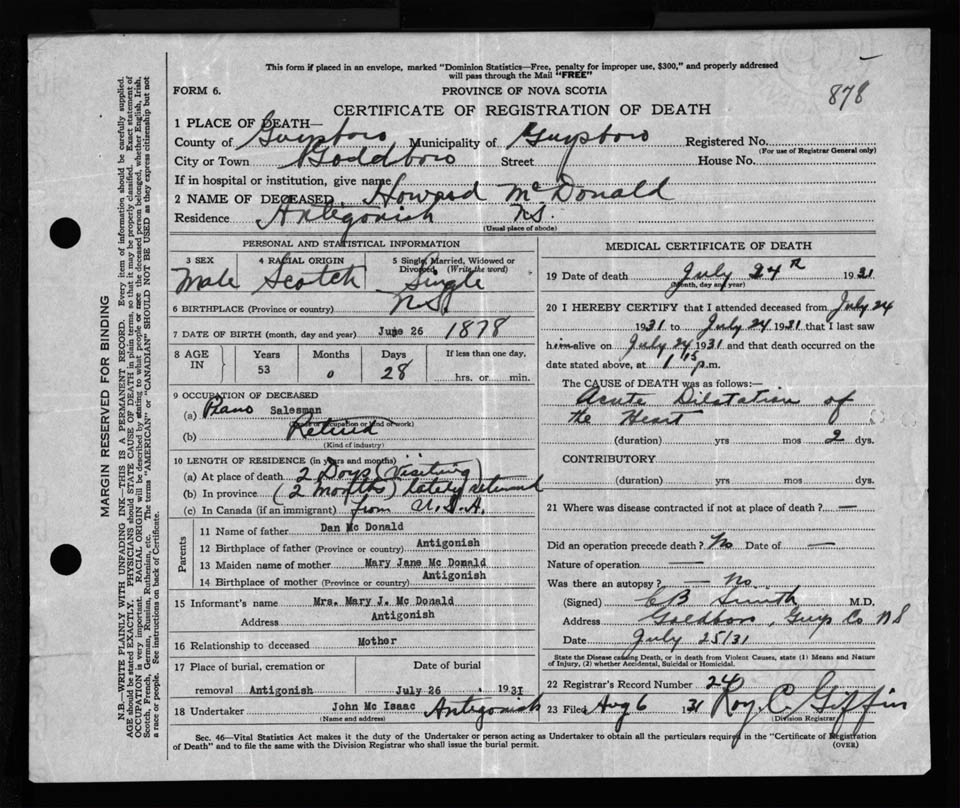 This form if placed in an envelope, marked "Dominion Statistics—Free, penalty for improper use, $300," and properly addressed
will pass through the Mail "FREE"
878
FORM 6. PROVINCE OF NOVA SCOTIA
CERTIFICATE OF REGISTRATION OF DEATH
1 PLACE OF DEATH—
County of Guysboro Municipality of Guysboro Registered No.
(For use of Registrar General only)
City or Town Goldboro Street House No.
If in hospital or institution, give name
2 NAME OF DECEASED Howard McDonald
Residence Antigonish N.S.
(Usual place of abode)
PERSONAL AND STATISTICAL INFORMATION
3 SEX 4 RACIAL ORIGIN 5 Single, Married, Widowed or Divorced, (Write the word)
Male Scotch Single
6 BIRTHPLACE (Province or country) N.S.
7 DATE OF BIRTH (month, day and year) June 26 1878
8 AGE IN Years Months Days If less than one day,
53 0 28 hrs. or min.
9 OCCUPATION OF DECEASED
(a) Piano Salesman
(Trade or occupation or kind of work)
(b) Retired
(Kind of industry)
10 LENGTH OF RESIDENCE (in years and months)
(a) At place of death 2 Days (visiting)
(b) In province (2 months) lately returned
(c) In Canada (if an immigrant) from U.S.A.
Parents
11 Name of father Dan Mc Donald
12 Birthplace of father (Province or country) Antigonish
13 Maiden name of mother Mary Jane Mc Donald
14 Birthplace of mother (Province or country) Antigonish
15 Informant's name Mrs. Mary J. Mc Donald
Address Antigonish
16 Relationship to deceased Mother
17 Place of burial, cremation or Date of burial
removal Antigonish July 26 1931
18 Undertaker John Mc Isaac Antigonish
(Name and address)
MEDICAL CERTIFICATE OF DEATH
19 Date of death July 24th 1931
(Month, day and year)
20 I HEREBY CERTIFY that I attended deceased from July 24
1931 to July 24 1931 that I last saw
him alive on July 24 1931 and that death occurred on the
date stated above, at 1 15 p.m.
The CAUSE of DEATH was as follows:—
Acute Dilatation of
the Heart
(duration) yrs mos 2 dys.
CONTRIBUTORY
(duration) yrs mos dys.
21 Where was disease contracted if not at place of death? —
Did an operation precede death? No Date of —
Nature of operation —
Was there an autopsy? — No
(Signed) C B Smith M.D.
Address Goldboro, Guys Co NS
Date July 25/31
State the Disease causing Death, or in death from Violent Causes, state (1) Means and Nature
of Injury, (2) whether Accidental, Suicidal or Homicidal.
22 Registrar's Record Number 24
23 Filed Aug 6 1931 Roy C. Giffin
(Division Registrar)
Sec. 46—Vital Statistics Act makes it the duty of the Undertaker or person acting as Undertaker to obtain all the particulars required in the "Certificate of Registration
of Death" and to file the same with the Division Registrar who shall issue the burial permit.
(OVER)
MARGIN RESERVED FOR BINDING
N.B.—WRITE PLAINLY WITH UNFADING INK—THIS IS A PERMANENT RECORD. Every item of information should be carefully supplied.
AGE should be stated EXACTLY. PHYSICIANS should STATE CAUSE OF DEATH in plain terms, so that it may be properly classified. Exact statement of
OCCUPATION is very important. RACIAL ORIGIN will be described by stating to what people or race the deceased person belonged, whether English, Irish,
Scotch, French, German, Russian, Ruthenian, etc. The terms "AMERICAN" or "CANADIAN" SHOULD NOT BE USED as they express citizenship but not
a race or people. See instructions on back of Certificate.